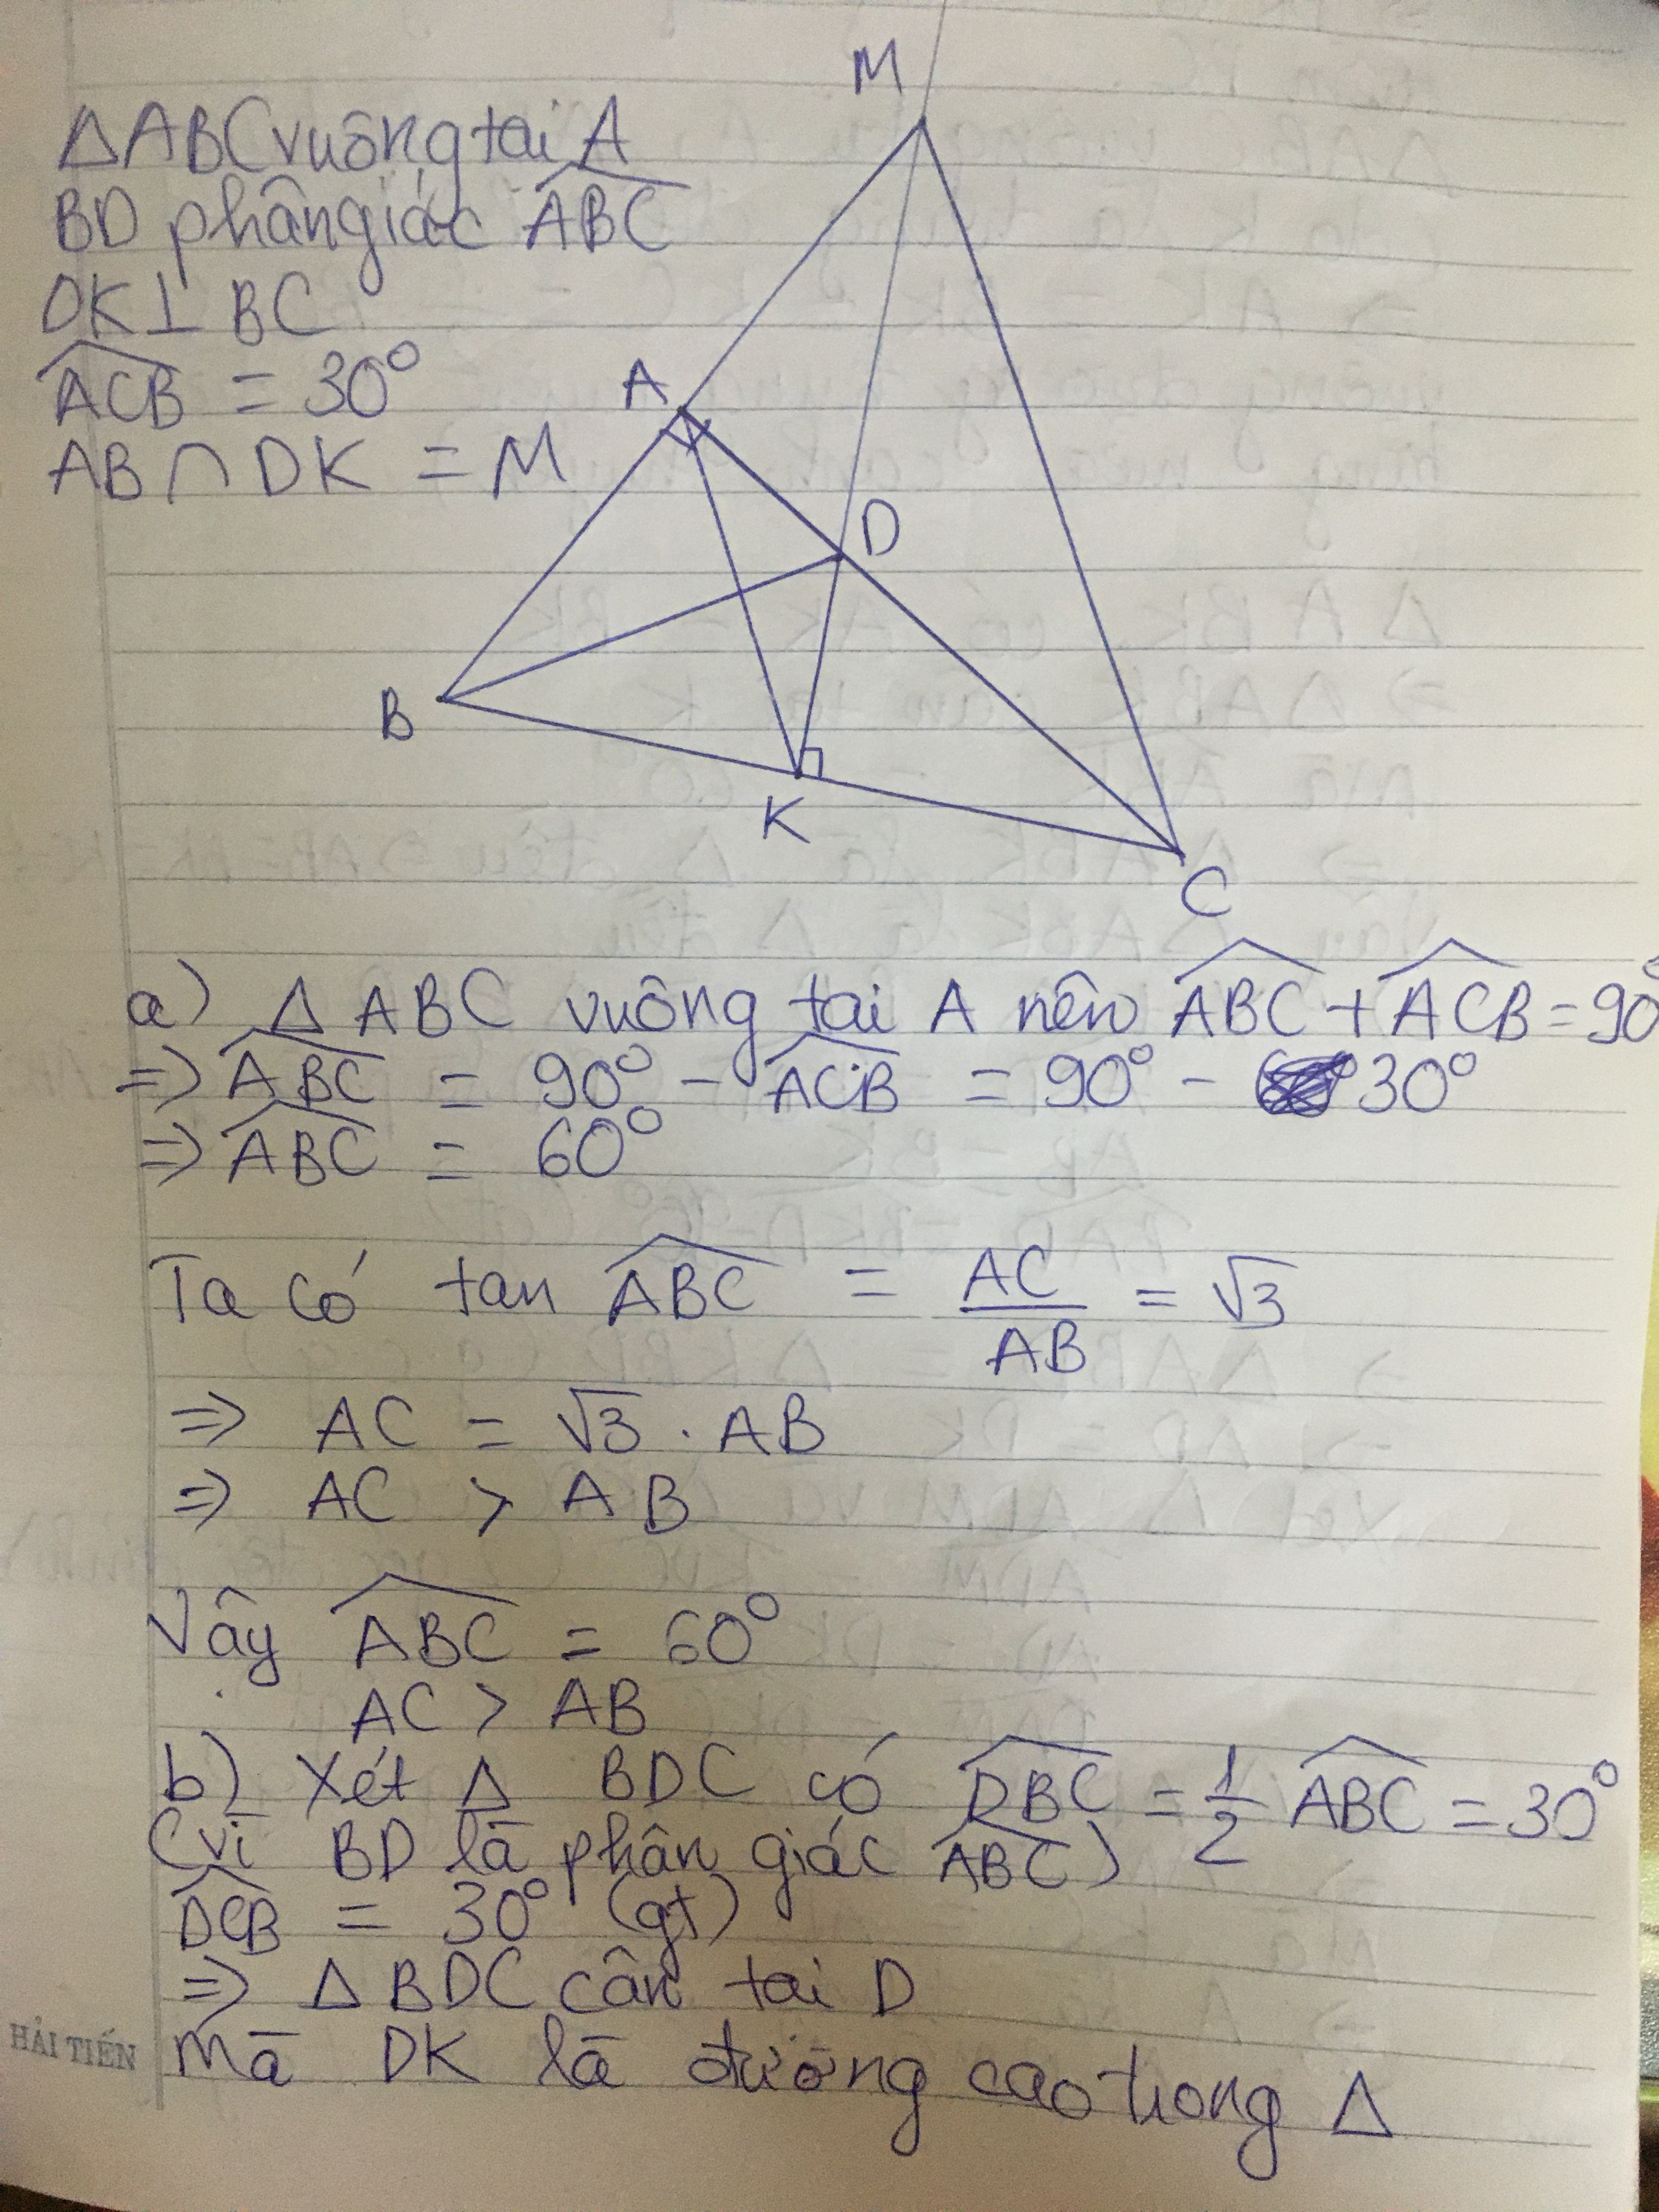 M
△ABC vuông tại A
BD phân giác \widehat{ABC}
DK⊥ BC
\widehat{ACB} = 30°
AB ∩ DK = M
A
D
B
K
C
a) △ ABC vuông tại A nên \widehat{ABC} + \widehat{ACB} = 90°
=> \widehat{ABC} = 90° - \widehat{ACB} = 90° - 30°
=> \widehat{ABC} = 60°
Ta có tan \widehat{ABC} = \frac{AC}{AB} = √3
=> AC = √3 . AB
=> AC > AB
Vây \widehat{ABC} = 60°
AC > AB
b) Xét △ BDC có \widehat{DBC} = \frac{1}{2} \widehat{ABC} = 30°
(vì BD là phân giác \widehat{ABC})
\widehat{DCB} = 30° (gt)
=> △ BDC cân tại D
Mà DK là đường cao trong △
HẢI TIẾN